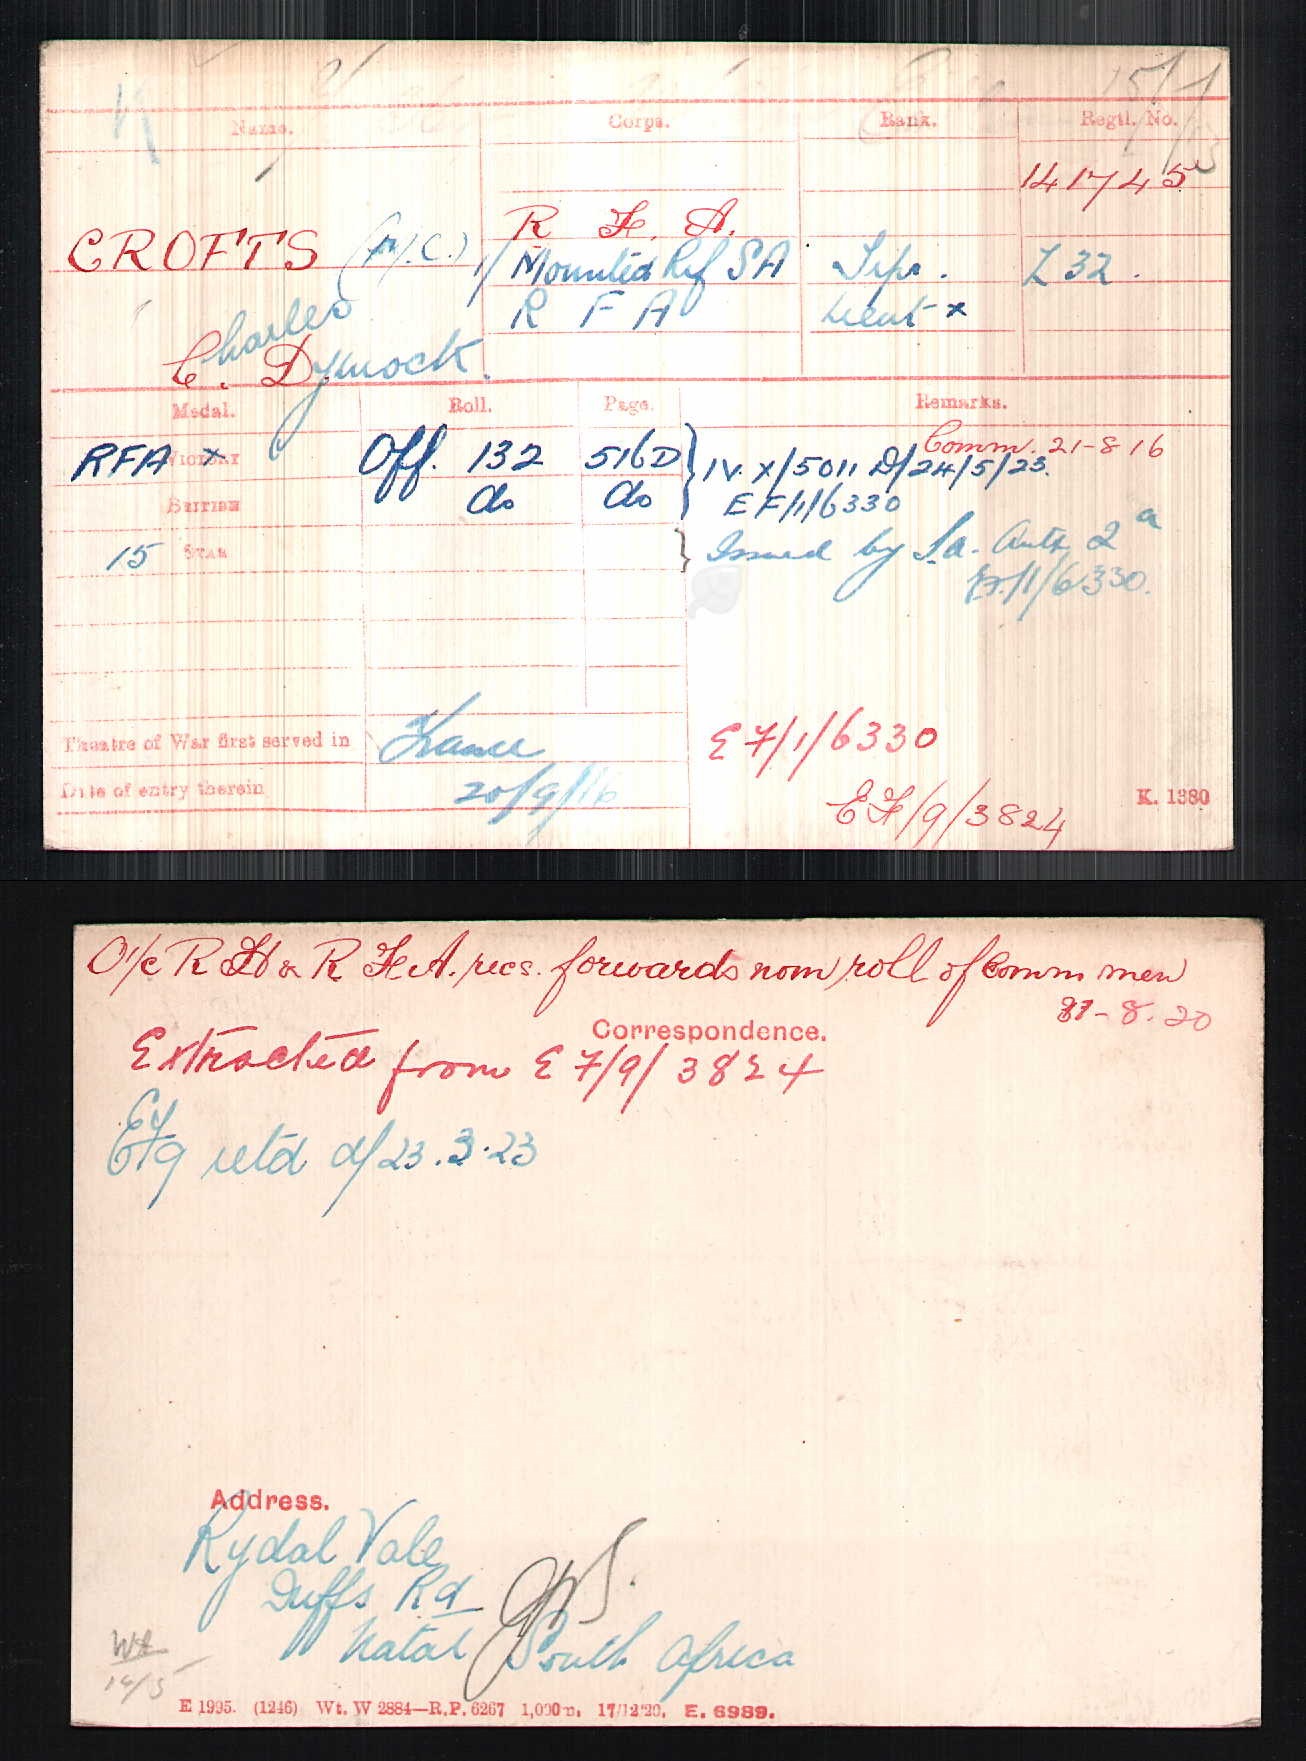 Name. Corps. Rank. Regtl. No.
141745
CROFTS (M.C.) R. F. A.
1/ Mounted Rif SA Z 32.
R F A Lieut x
Charles
C. Dymock.
Medal. Roll. Page. Remarks.
Comm. 21-8 16
RFA x VICTORY Off. 132 516D IV. X/5011 D/24/5/23.
BRITISH do do E F/1/6330
15 STAR Issued by S.a. Auth 2a
EF/1/6330.
Theatre of War first served in France
Date of entry therein 20/9/16
E F/1/6330
EF/9/3824
K. 1380
O i/c R H & R F A. recs. forwards nom roll of Comm men
31-8.20
Correspondence.
Extracted from E F/9/3824
EF/9 retd d/23.3.23
Address.
Rydal Vale
Duffs Rd
Natal South Africa
14/5
E 1995. (1246) Wt. W 2884—R.P. 6267 1,000m. 17/12/20. E. 6989.